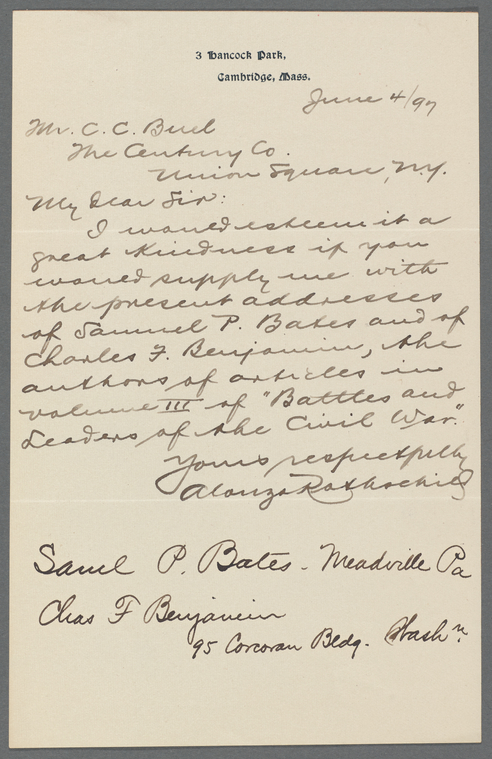 3 Hancock Park,
Cambridge, Mass.
June 4/97
Mr. C. C. Buel
The Century Co.
Union Square, N.Y.
My Dear Sir:
I would esteem it a
great kindness if you
would supply me with
the present addresses
of Samuel P. Bates and of
Charles F. Benjamin, the
authors of articles in
volume III of "Battles and
Leaders of the Civil War."
Yours respectfully
Alonzo Rothschild
Saml P. Bates - Meadville Pa
Chas F Benjamin
95 Corcoran Bldg. Washn.